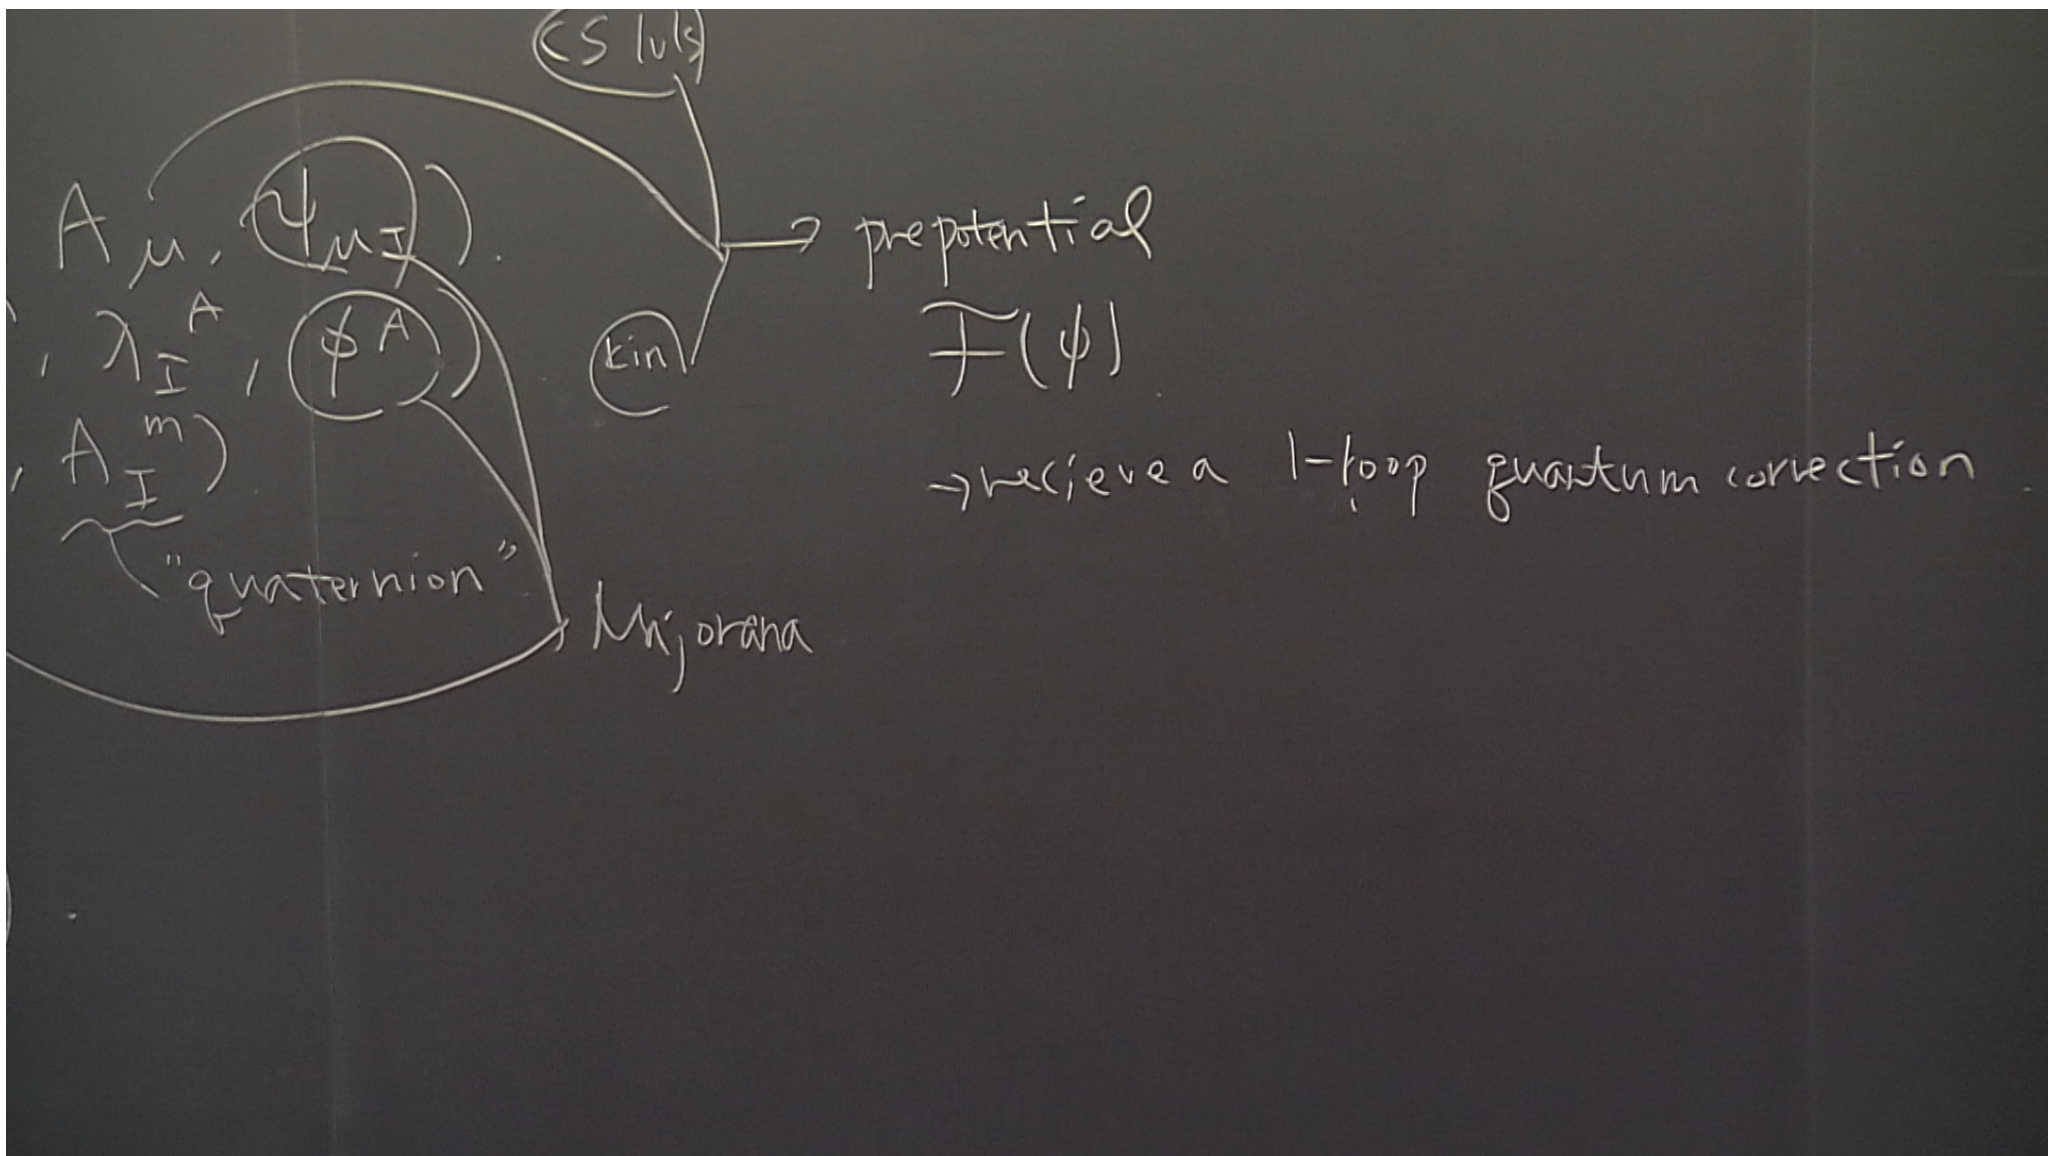 CS lvls
A_μ, ψ_{μI}).
, λ_I^A, φ^A)
, A_I^m)
"quaternion"
kin
→ prepotential
F(φ)
→ recieve a 1-loop quantum correction.
Majorana